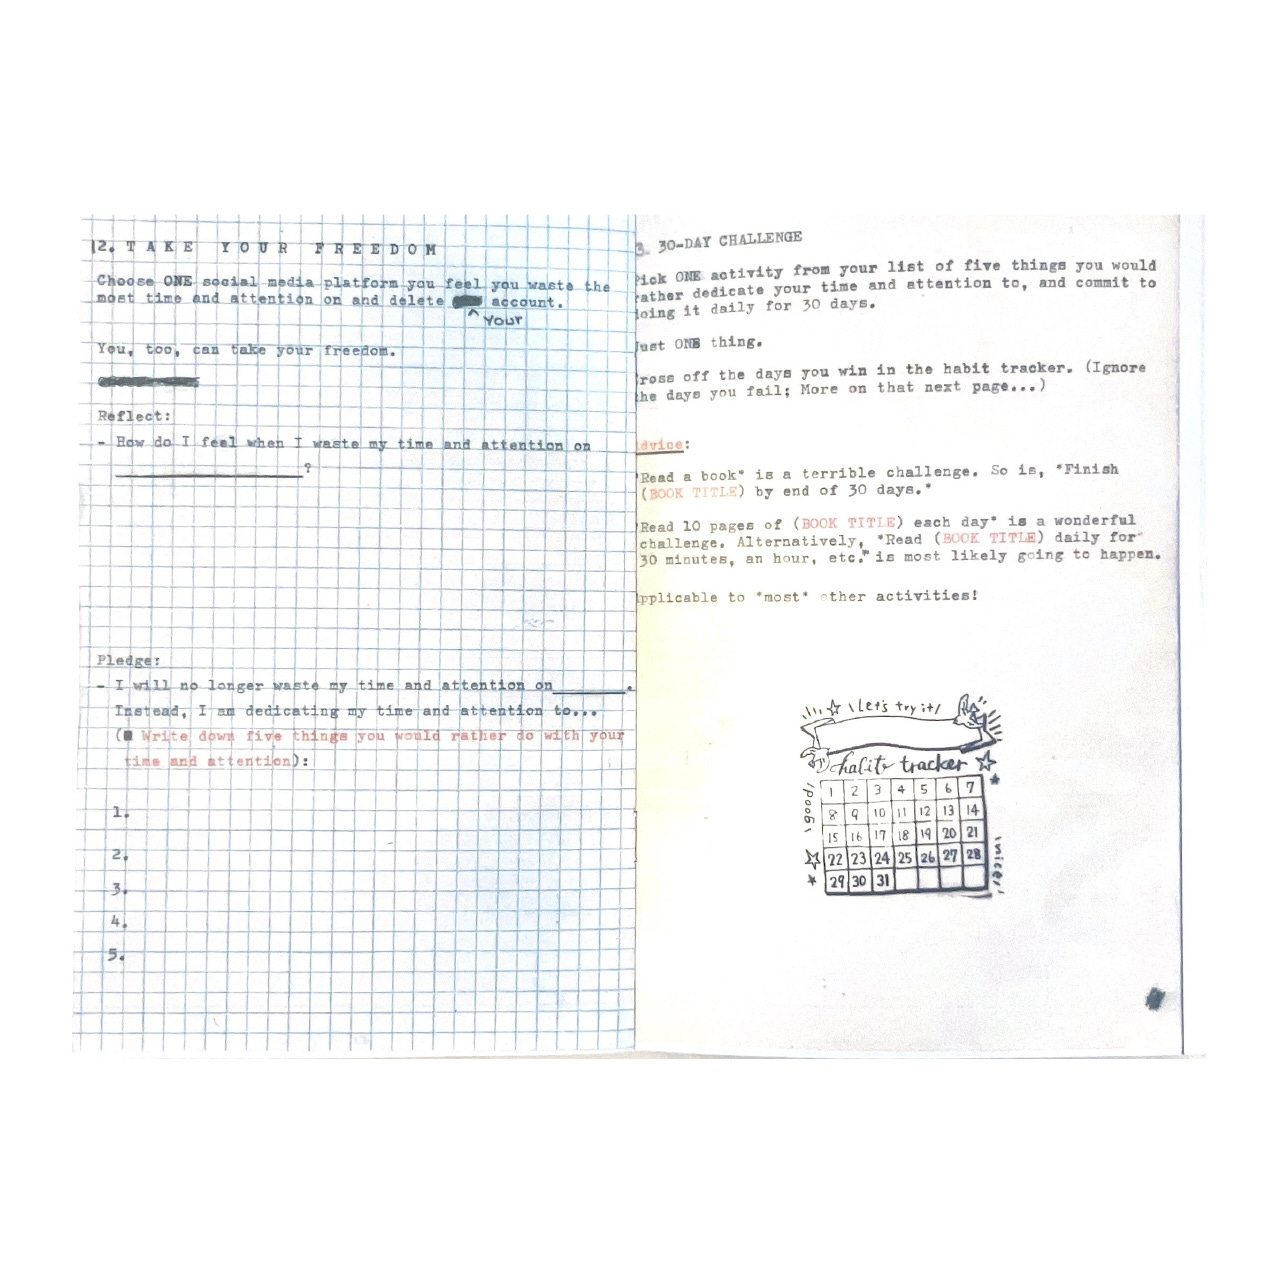 12. TAKE YOUR FREEDOM
Choose ONE social media platform you feel you waste the
most time and attention on and delete account.
^ Your
You, too, can take your freedom.
Reflect:
- How do I feel when I waste my time and attention on
____________________?
Pledge:
- I will no longer waste my time and attention on________.
Instead, I am dedicating my time and attention to...
( Write down five things you would rather do with your
time and attention):
1.
2.
3.
4.
5.
3. 30-DAY CHALLENGE
ick ONE activity from your list of five things you would
ather dedicate your time and attention to, and commit to
oing it daily for 30 days.
ust ONE thing.
ross off the days you win in the habit tracker. (Ignore
he days you fail; More on that next page...)
dvice:
"Read a book" is a terrible challenge. So is, "Finish
(BOOK TITLE) by end of 30 days."
"Read 10 pages of (BOOK TITLE) each day" is a wonderful
challenge. Alternatively, "Read (BOOK TITLE) daily for
30 minutes, an hour, etc." is most likely going to happen.
pplicable to *most* other activities!
\ Let's try it /
habit tracker
good!
1 2 3 4 5 6 7
8 9 10 11 12 13 14
15 16 17 18 19 20 21
22 23 24 25 26 27 28
29 30 31
nice!